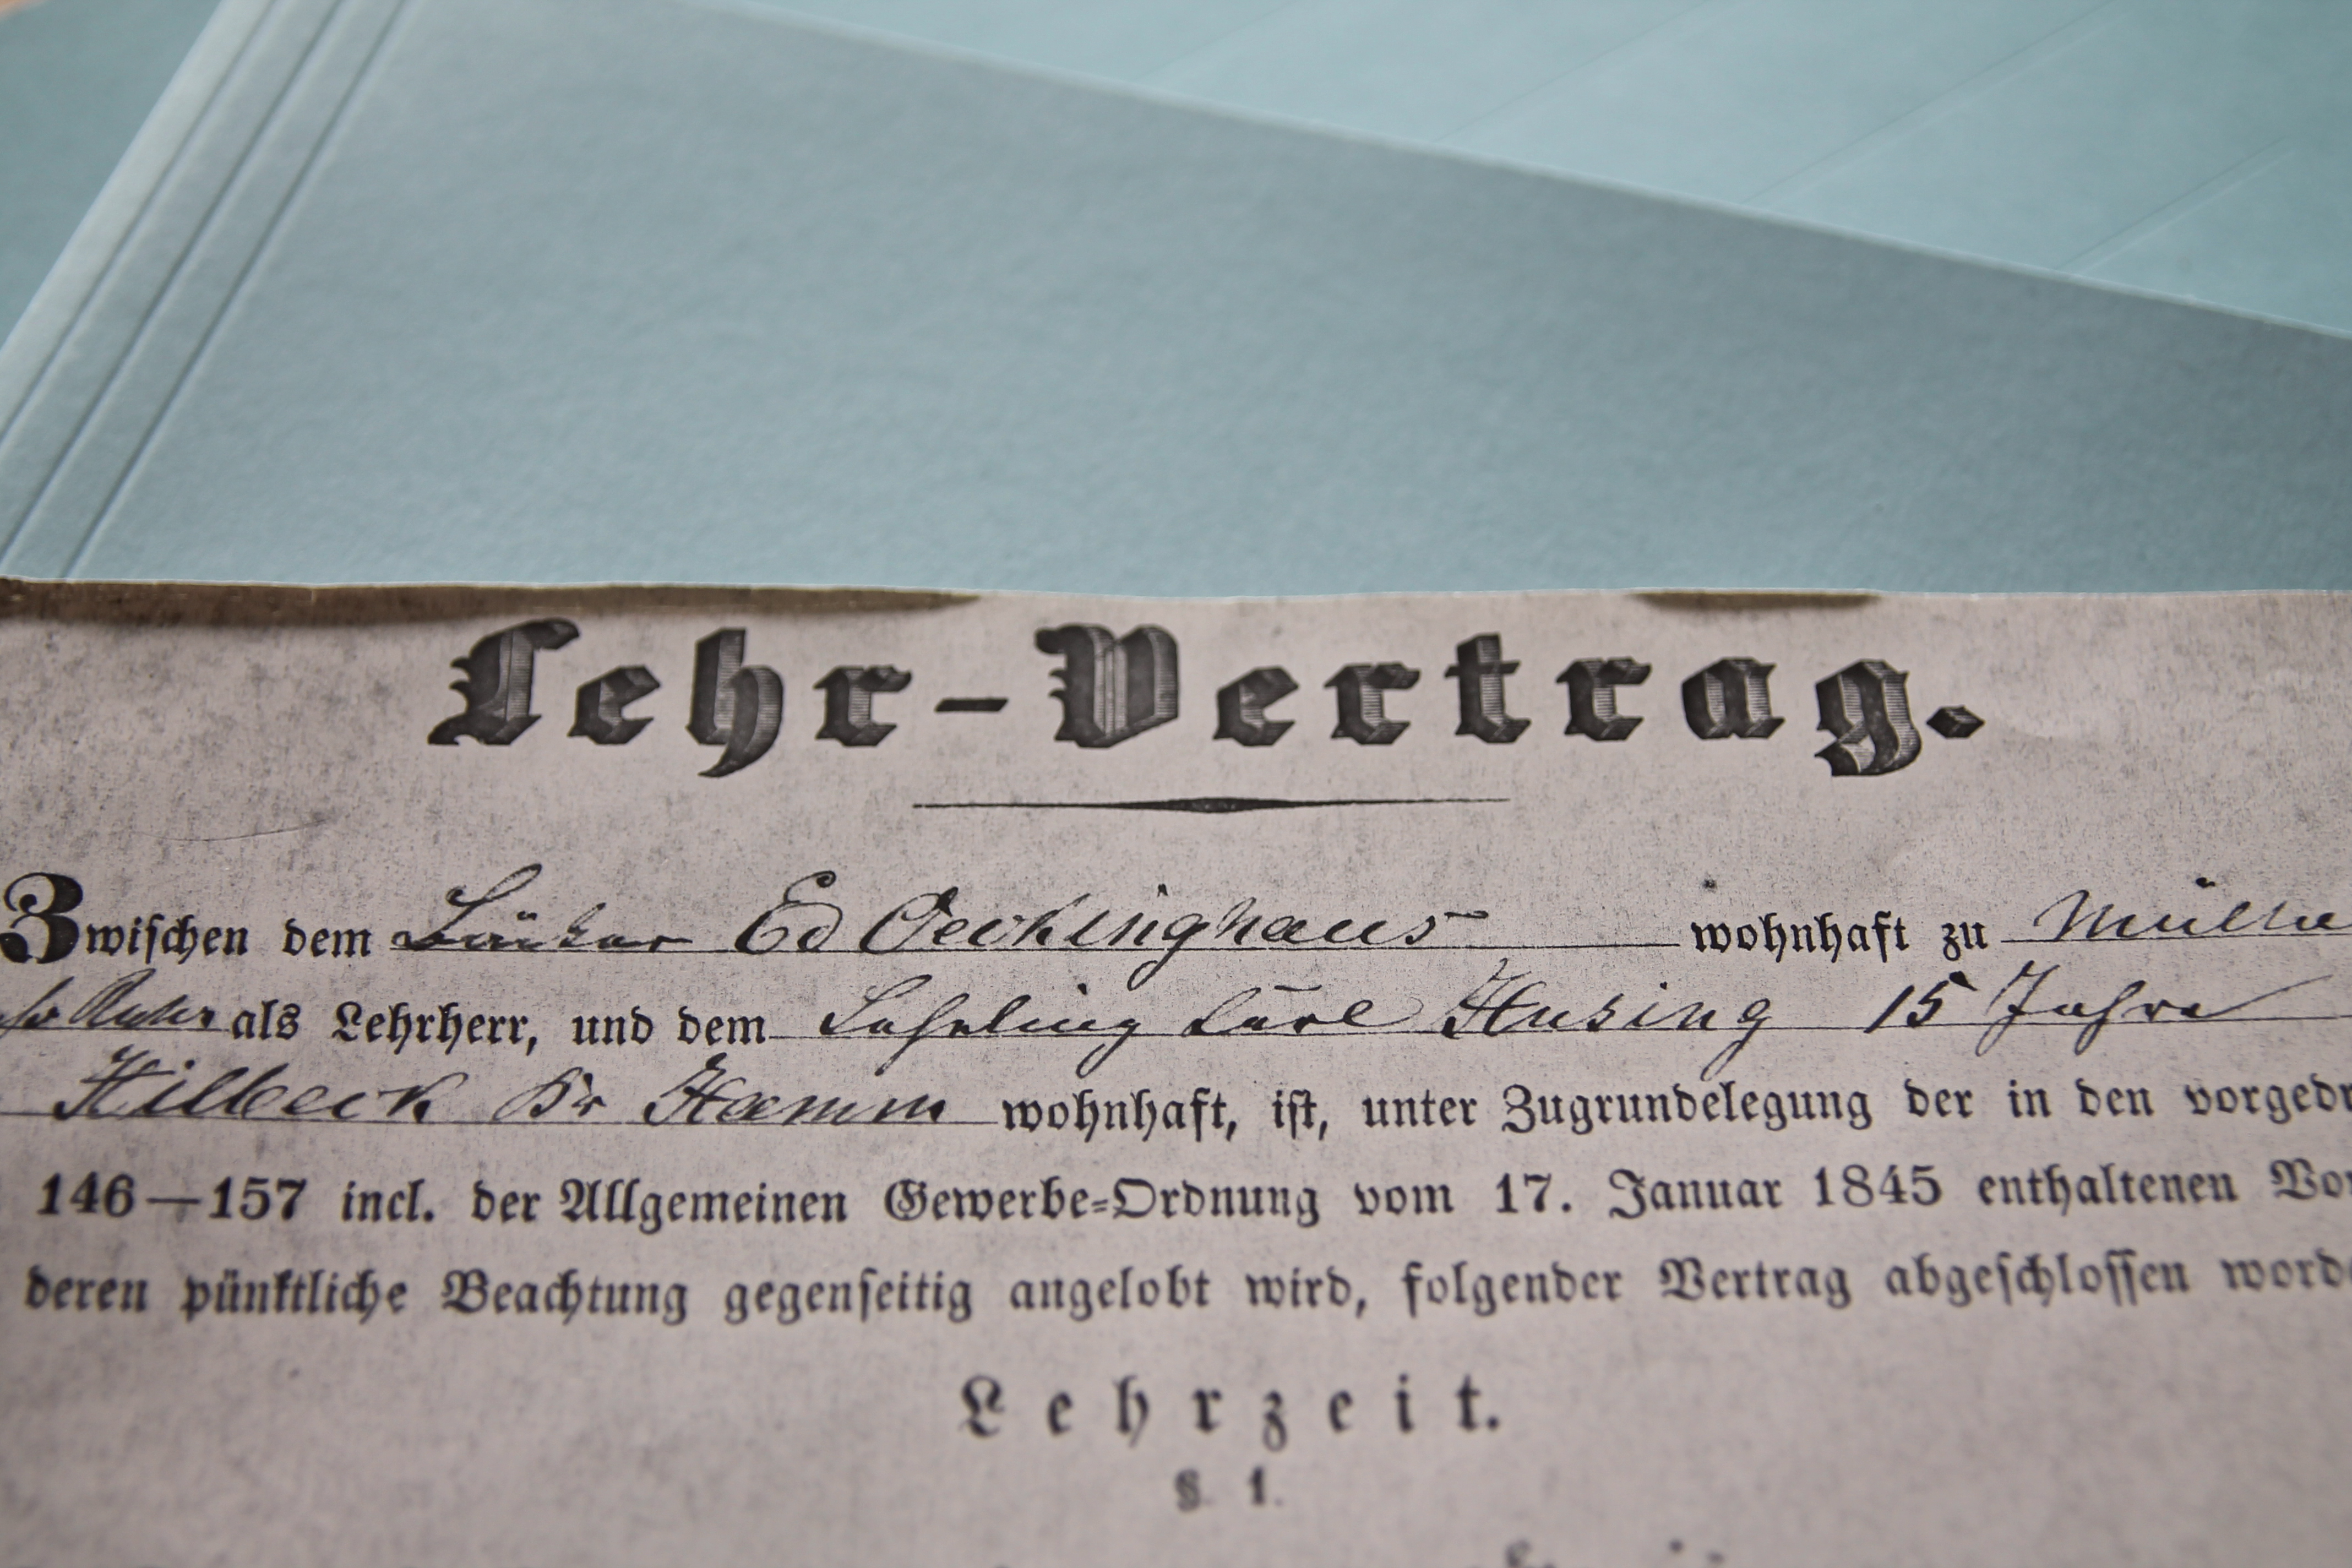 Lehr-Vertrag.
Zwischen dem Bäcker Ed Oeckinghaus wohnhaft zu Mülhe
Ruhr als Lehrherr, und dem Lehrling Carl Husing 15 Jahre
Hilbeck Kr Hamm wohnhaft, ist, unter Zugrundelegung der in den vorgedr
146—157 incl. der Allgemeinen Gewerbe-Ordnung vom 17. Januar 1845 enthaltenen Vor
deren pünktliche Beachtung gegenseitig angelobt wird, folgender Vertrag abgeschlossen worde
Lehrzeit.
§. 1.